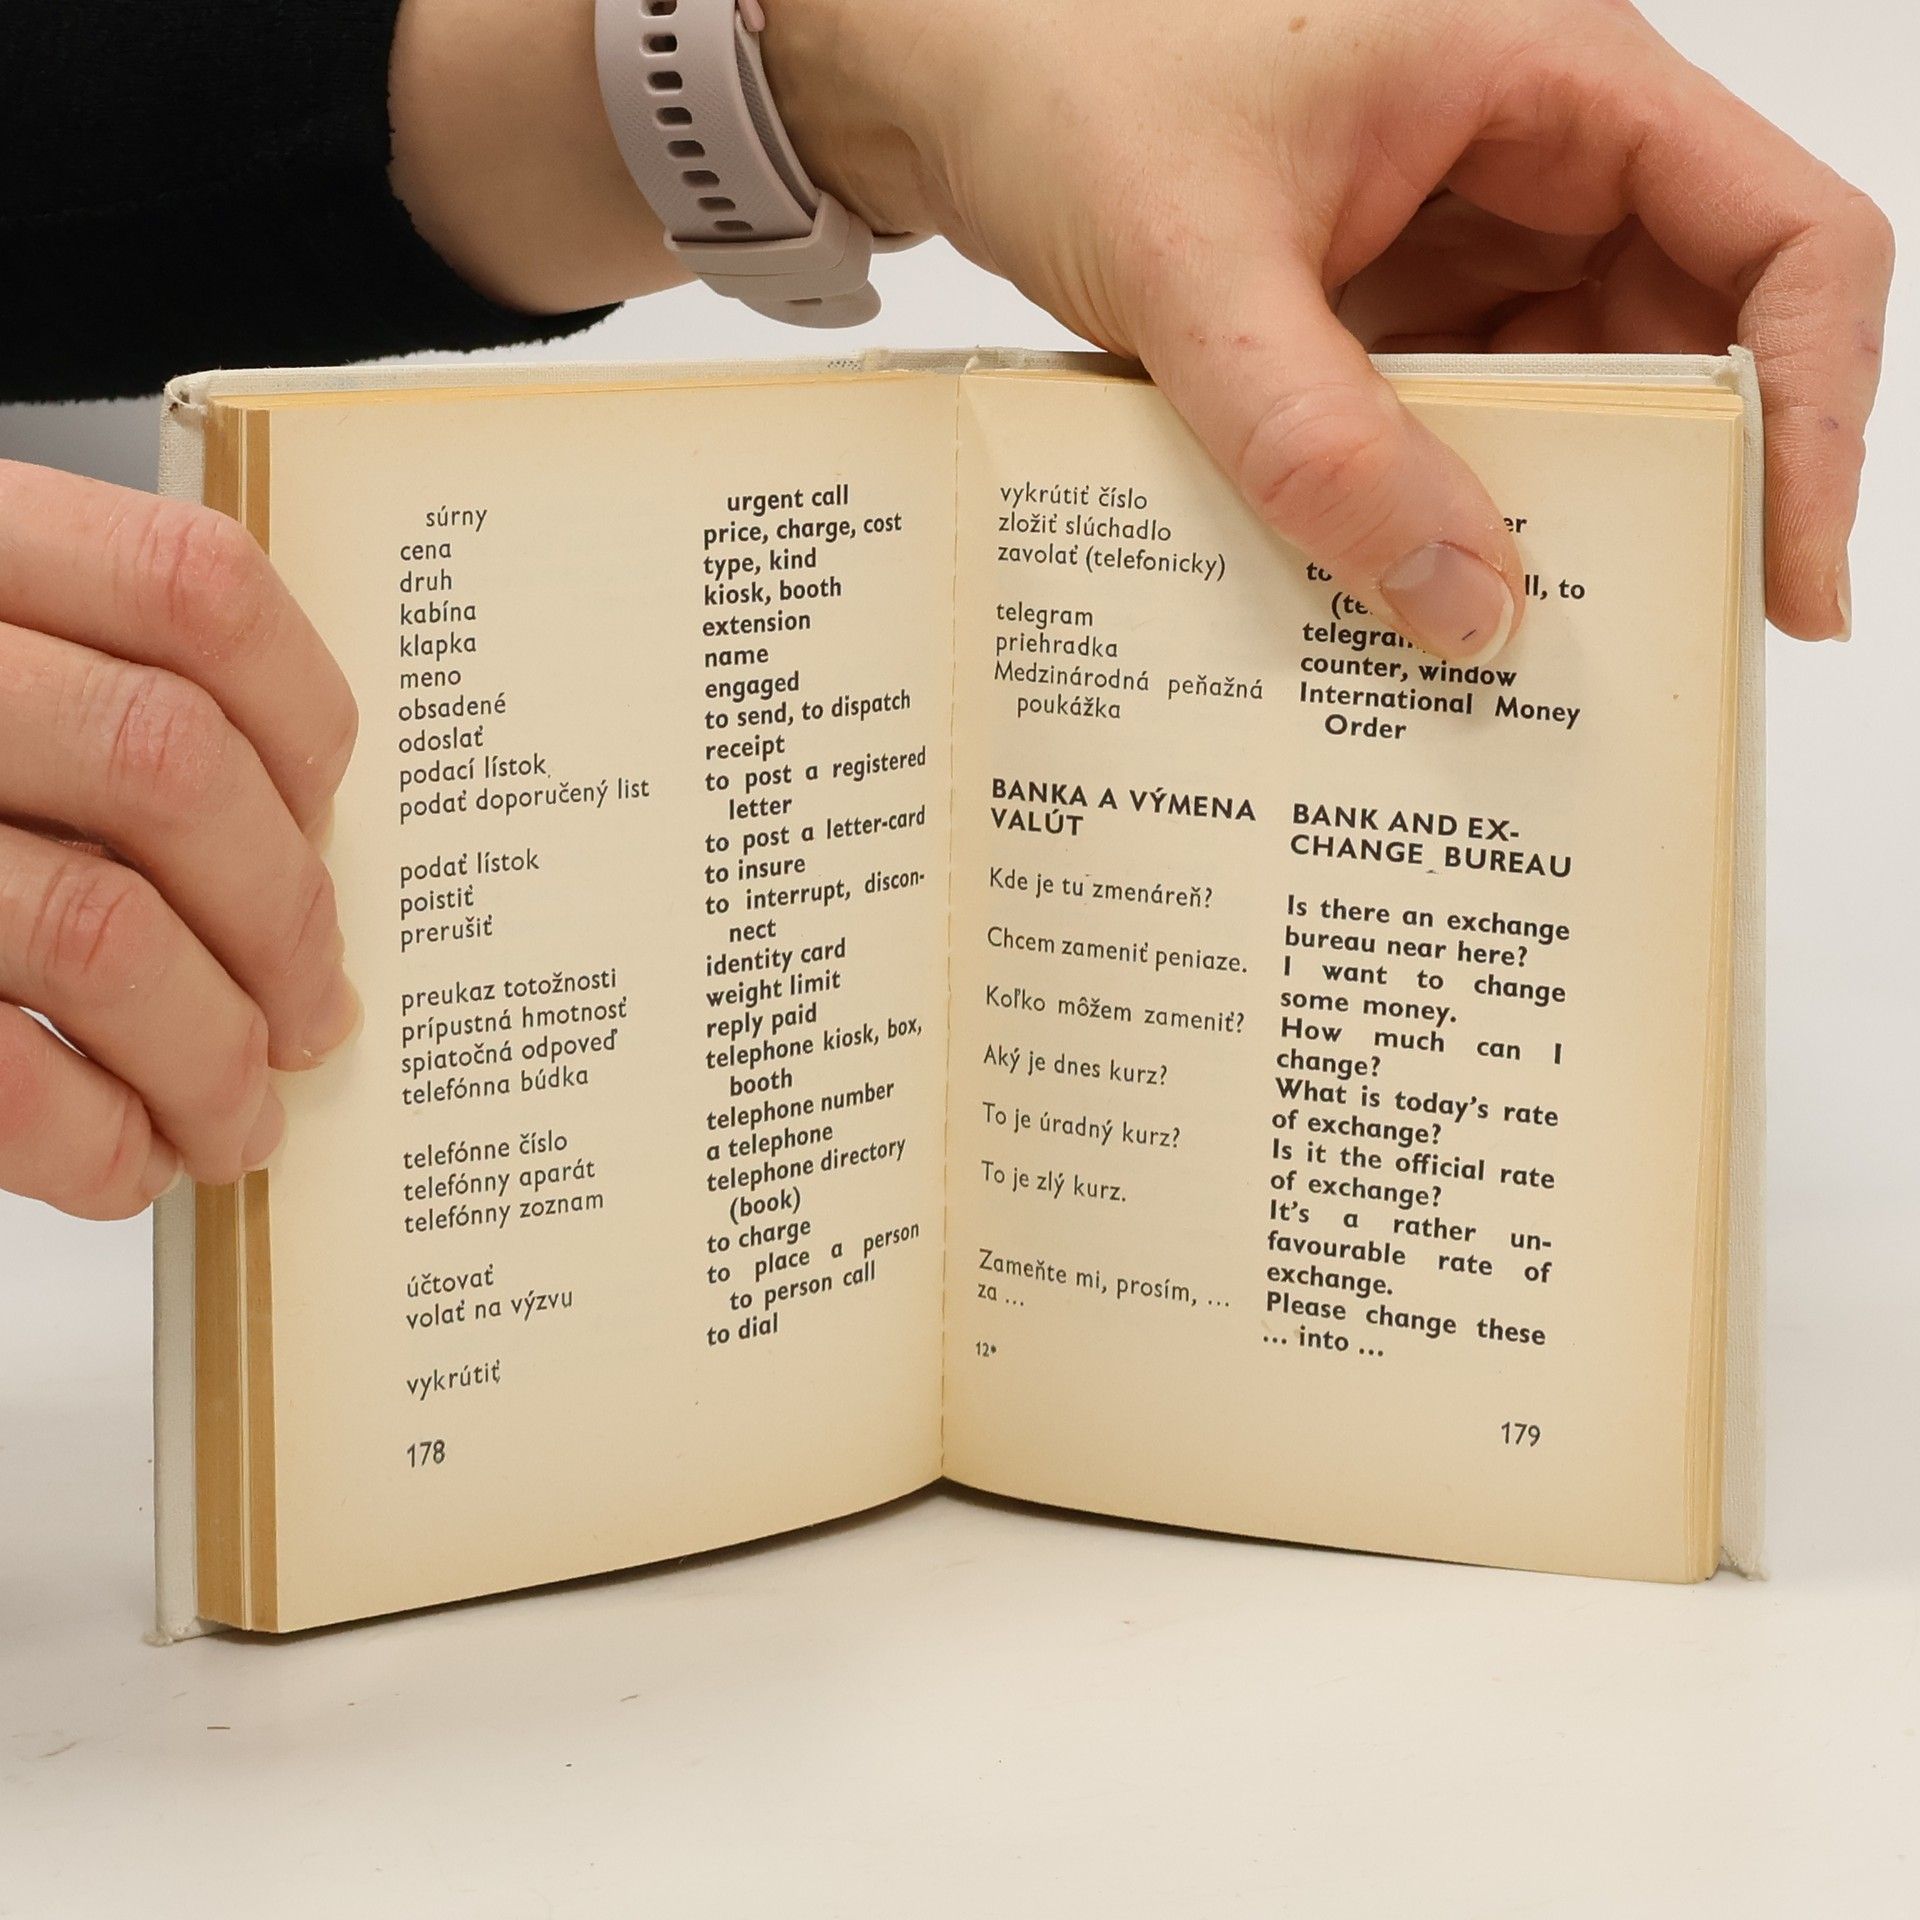 súrny
cena
druh
kabína
klapka
meno
obsadené
odoslať
podací lístok
podať doporučený list
podať lístok
poistiť
prerušiť
preukaz totožnosti
prípustná hmotnosť
spiatočná odpoveď
telefónna búdka
telefónne číslo
telefónny aparát
telefónny zoznam
účtovať
volať na výzvu
vykrútiť
178
urgent call
price, charge, cost
type, kind
kiosk, booth
extension
name
engaged
to send, to dispatch
receipt
to post a registered
letter
to post a letter-card
to insure
to interrupt, discon-
nect
identity card
weight limit
reply paid
telephone kiosk, box,
booth
telephone number
a telephone
telephone directory
(book)
to charge
to place a person
to person call
to dial
vykrútiť číslo
zložiť slúchadlo
zavolať (telefonicky)
telegram
priehradka
Medzinárodná peňažná
poukážka
BANKA A VÝMENA
VALÚT
Kde je tu zmenáreň?
Chcem zameniť peniaze.
Koľko môžem zameniť?
Aký je dnes kurz?
To je úradný kurz?
To je zlý kurz.
Zameňte mi, prosím, ...
za ...
12*
to
counter, window
International Money
Order
BANK AND EX-
CHANGE BUREAU
Is there an exchange
bureau near here?
I want to change
some money.
How much can I
change?
What is today's rate
of exchange?
Is it the official rate
of exchange?
It's a rather un-
favourable rate of
exchange.
Please change these
... into ...
179